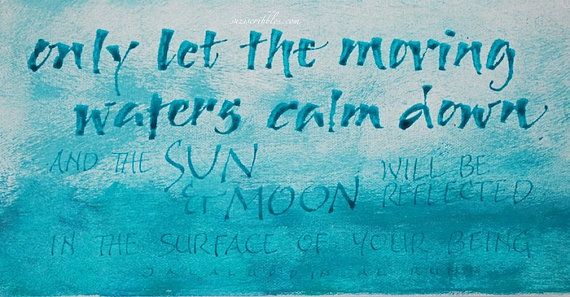 suziscribbles.com
only let the moving
waters calm down
AND THE SUN WILL BE
& MOON REFLECTED
IN THE SURFACE OF YOUR BEING
JALALUDDIN AL RUMI